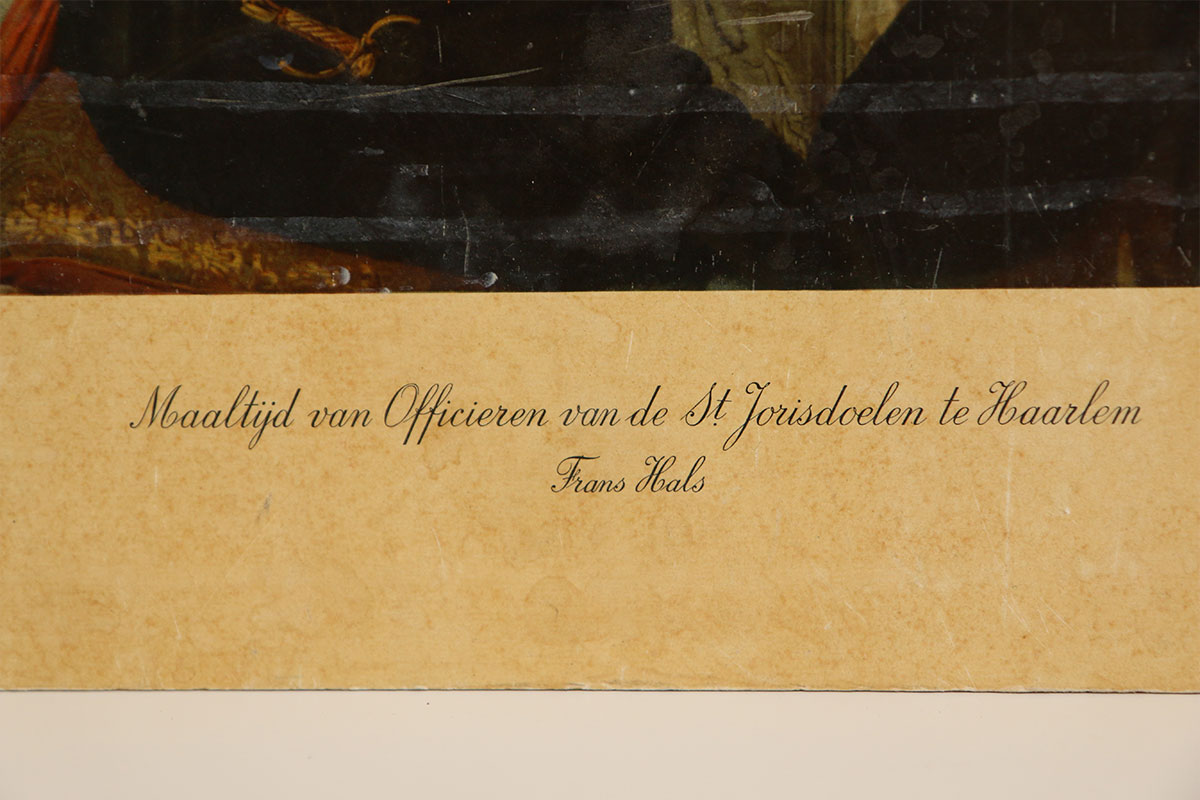 Maaltijd van Officieren van de St. Jorisdoelen te Haarlem
Frans Hals